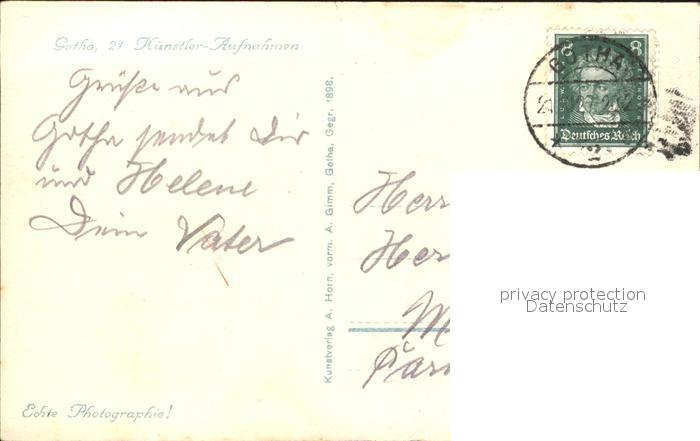 Gotha, 21 Künstler-Aufnahmen
Grüße aus
Gotha sendet Dir
und Helene
Dein Vater
Echte Photographie!
Kunstverlag A. Horn, vorm. A. Gimm, Gotha, Gegr. 1898.
8 8
Deutsches Reich
GOTHA
Herr
Her
M
privacy protection
Datenschutz